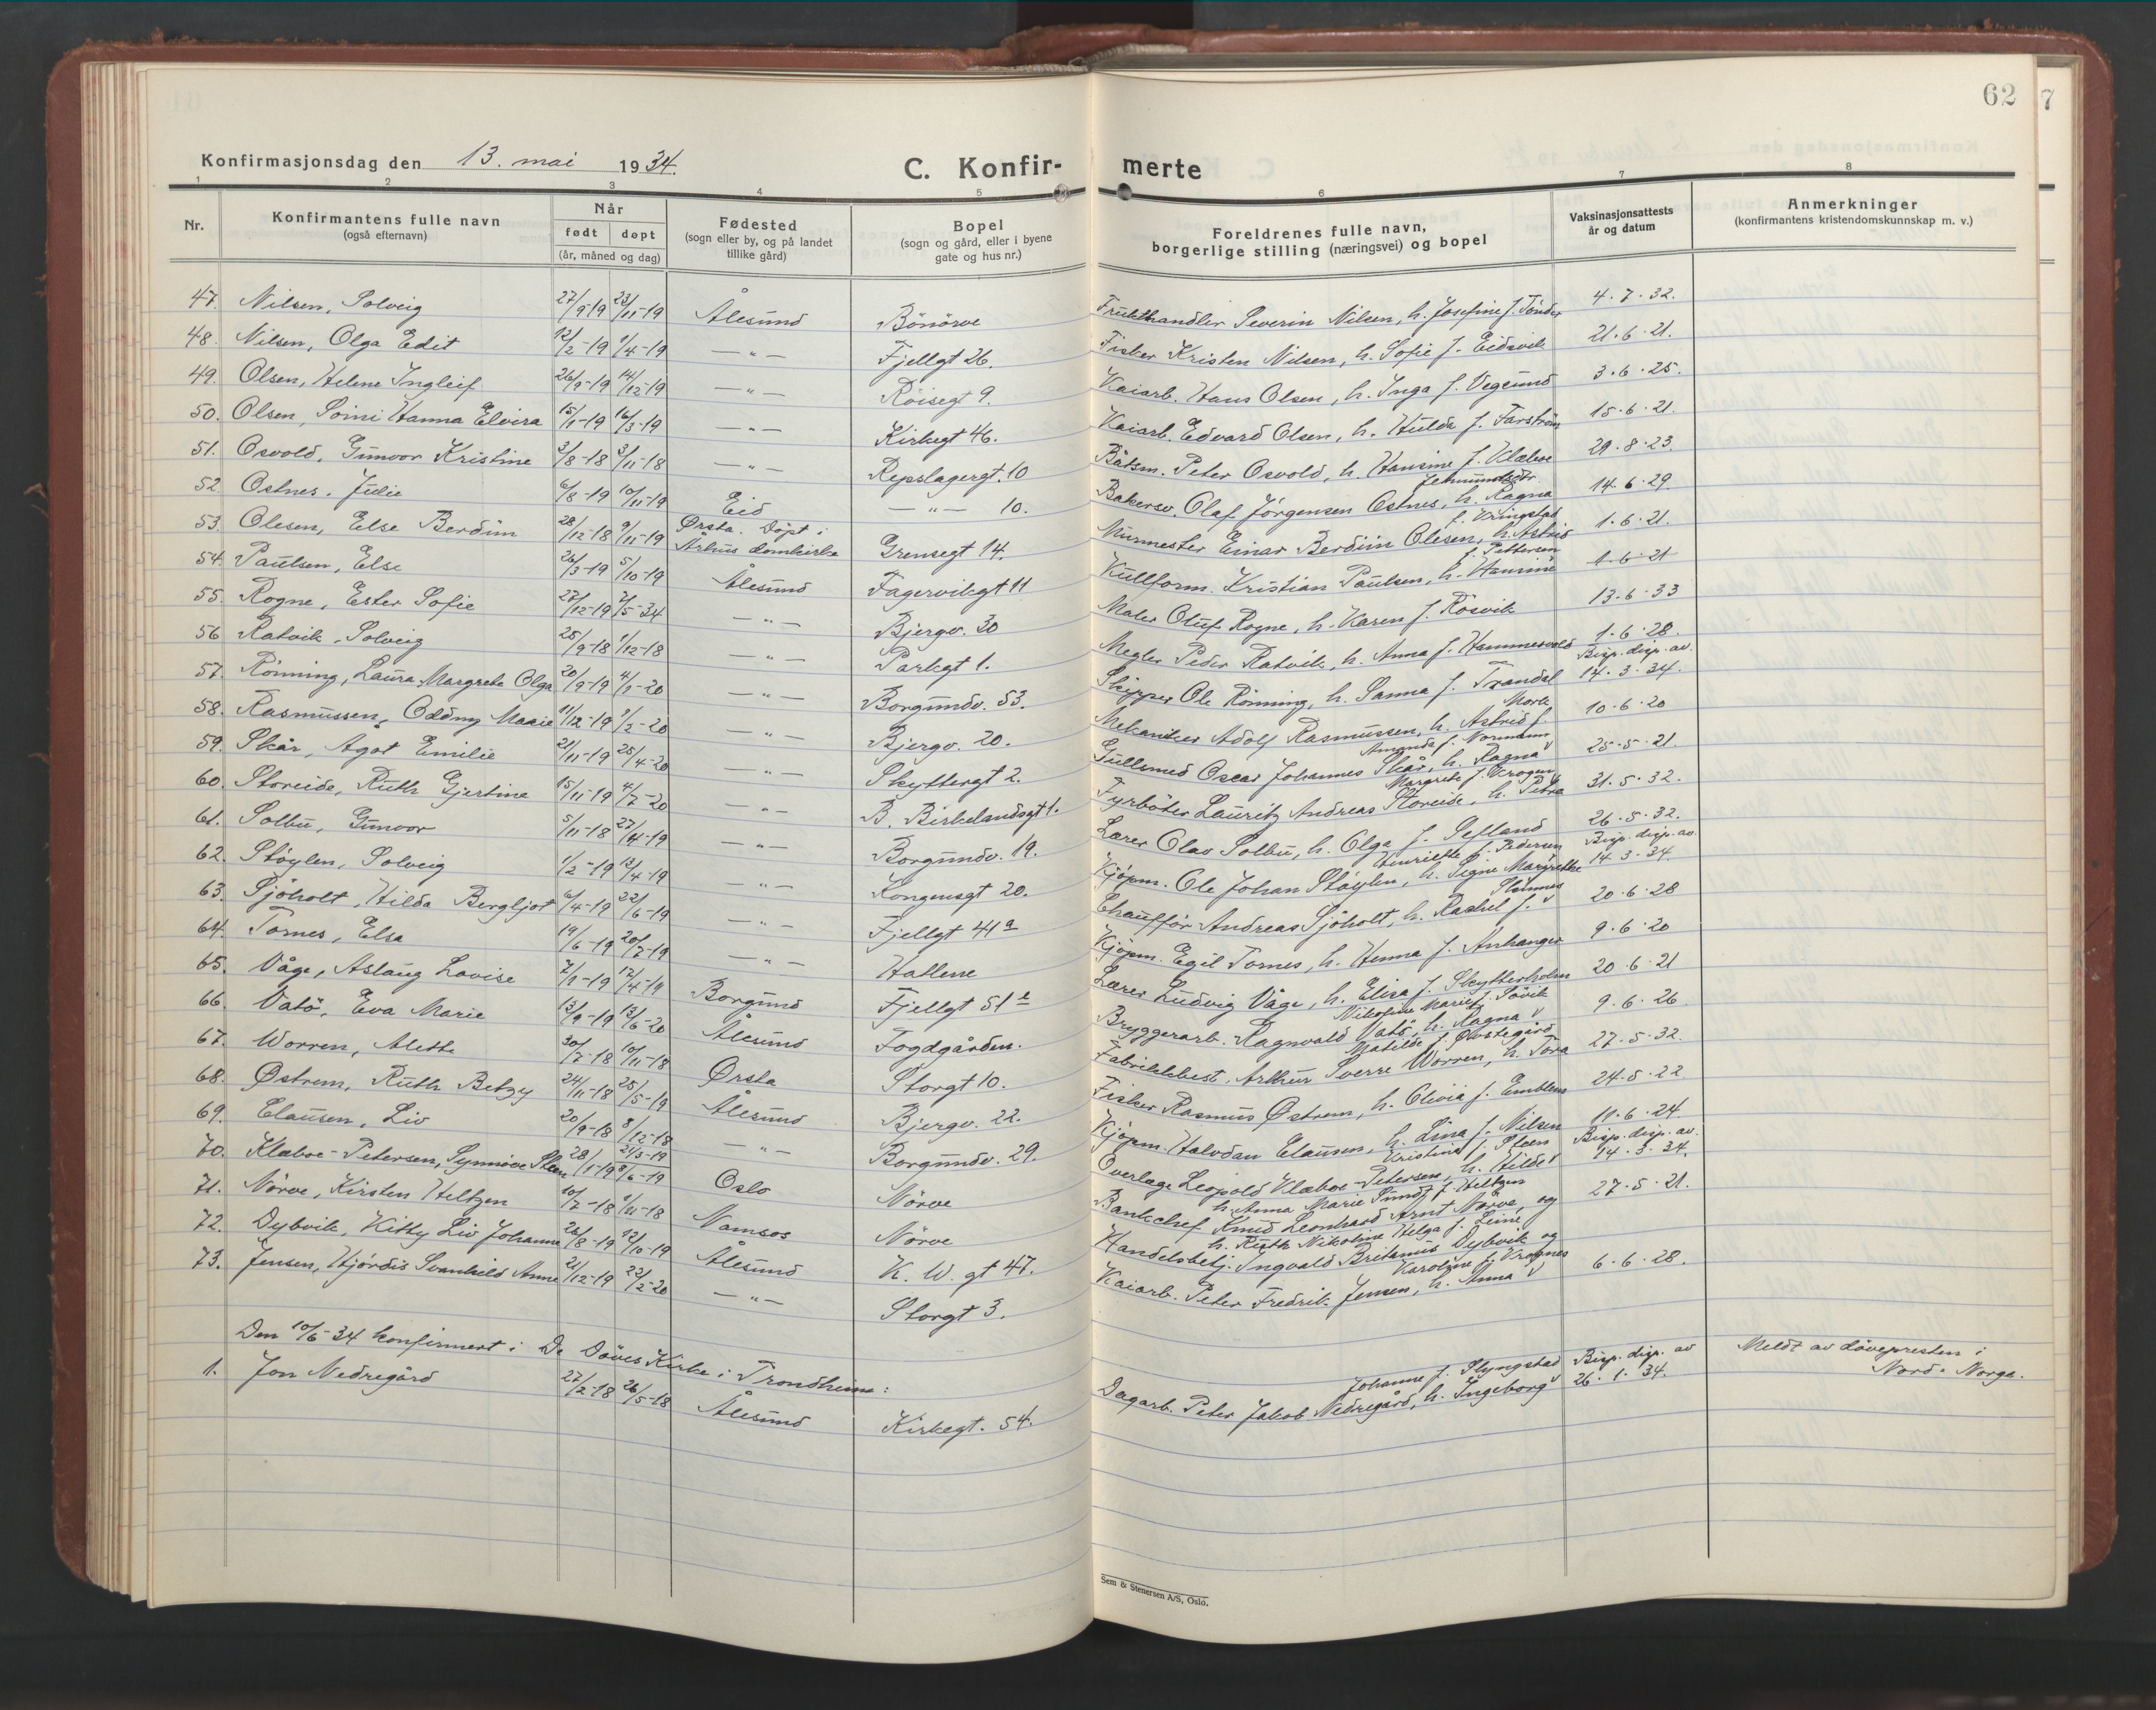 62
7
Konfirmasjonsdag den 13. mai 1934.
C. Konfir-
merte
1 2 3 4 5 6 7 8
Nr.
Konfirmantens fulle navn
(også efternavn)
Når
født døpt
(år, måned og dag)
Fødested
(sogn eller by, og på landet
tillike gård)
Bopel
(sogn og gård, eller i byene
gate og hus nr.)
Foreldrenes fulle navn,
borgerlige stilling (næringsvei) og bopel
Vaksinasjonsattests
år og datum
Anmerkninger
(konfirmantens kristendomskunnskap m. v.)
47. Nilsen, Solveig 27/9-19 23/11-19 Ålesund Bönörve Frukthandler Severin Nilsen, h. Josefine f. Tönder 4.7.32.
48. Nilsen, Olga Edit 12/2-19 1/4-19 — " — Fjellgt 26. Fisker Kristen Nilsen, h. Sofie f. Eidsvik 21.6.21.
49. Olsen, Helene Ingleif 26/9-19 14/12-19 — " — Röisegt 9. Kaiarb. Hans Olsen, h. Inga f. Vegsund 3.6.25.
50. Olsen, Soini Hanna Elvira 15/1-19 16/3-19 — " — Kirkegt 46. Kaiarb. Edvard Olsen, h. Hulda f. Farström 15.6.21.
51. Osvold, Gunvor Kristine 3/8-18 3/11-18 — " — Repslagergt. 10 Båtsm. Peter Osvold, h. Hansine f. Klæboe 29.8.23.
52. Ostnes, Julie 6/8-19 10/11-19 Eid — " — 10. Bakersv. Olaf Jörgensen Ostnes, h. Ragna 14.6.29.
53. Olesen, Else Berdiin 28/12-18 9/11-19 Ørsta. Döpt i
Århus domkirke Grensegt 14. Murmester Einar Berdiin Olesen, h. Astrid
f. Vringstad 1.6.21.
54. Paulsen, Else 26/3-19 5/10-19 Ålesund Fagervikgt 11 Kullform. Kristian Paulsen, h. Hansine
f. Pettersen 1.6.21
55. Rogne, Ester Sofie 27/12-19 2/5-34 — " — Bjergv. 30 Maler Oluf Rogne, h. Karen f. Rösvik 13.6.33
56 Ratvik, Solveig 25/9-18 1/12-18 — " — Parkgt 1. Megler Peder Ratvik, h. Anna f. Hammersvold 1.6.28.
57. Rönning, Laura Margrete Olga 20/9-19 4/1-20 — " — Borgundv. 53. Skipper Ole Rönning, h. Sanna f. Trandal Bisp. disp. av
14.3.34.
58. Rasmussen, Oddny Maaie 11/12-19 1/2-20 — " — Bjergv. 20. Mekaniker Adolf Rasmussen, h. Astrid f.
Mork 10.6.20
59. Skår, Agot Emilie 21/11-19 25/4-20 — " — Skyttergt 2. Gullsmed Oscar Johannes Skår, h. Ragna
Amanda f. Normann 25.5.21.
60. Storeide, Ruth Gjertine 15/11-19 4/7-20 — " — B. Birkelandsgt 1. Fyrböter Lauritz Andreas Storeide, h. Petra
Margrete f. Krogen 31.5.32.
61. Solbu, Gunvor 5/11-18 27/4-19 — " — Borgundv. 19. Lærer Olav Solbu, h. Olga f. Sefland 26.5.32.
62. Stöylen, Solveig 1/2-19 13/4-19 — " — Kongensgt 20. Kjöpm. Ole Johan Stöylen, h. Signe Margrethe
Henriette f. Pedersen Bisp. disp. av
14.3.34.
63. Sjöholt, Hilda Bergljot 6/4-19 22/6-19 — " — Fjellgt 41a Chauffør Andreas Sjöholt, h. Rachel f.
Slinnes 20.6.28
64. Tornes, Elsa 19/6-19 20/7-19 — " — Hallene Kjöpm. Egil Tornes, h. Henna f. Anhanger 9.6.20
65. Våge, Aslaug Lovise 7/1-19 17/4-19 Borgund Fjellgt 51e Lærer Ludvig Våge, h. Elisa f. Skytterholm 20.6.21
66. Vatö, Eva Marie 13/9-19 13/6-20 Ålesund Fogdgården. Bryggerarb. Ragnvald Vatö, h. Ragna
Nikoline Marie f. Sövik 9.6.26.
67. Worren, Alette 30/7-18 10/11-18 Ørsta Storgt 10. Fabrikkbest. Arthur Sverre Worren, h. Tora
Matilde f. Øvstegård 27.5.32.
68. Østrem, Ruth Betzy 24/11-18 25/5-19 Ålesund Bjergv. 22. Fisker Rasmus Østrem, h. Olivia f. Emblem 24.5.22
69. Clausen, Liv 20/9-18 8/12-18 — " — Borgundv. 29. Kjöpm. Halvdan Clausen, h. Lina f. Nilsen 11.6.24
70. Klæboe-Petersen, Synnöve Steen 28/1-19 8/6-19 Oslo Nörve Overlæge Leopold Klæboe-Petersen, h. Hilde
Kristina f. Steen Bisp. disp. av.
14.3.34.
71. Nörve, Kirsten Heltzen 10/7-18 1/11-18 Namsos Nörve Bankchef Knud Leonhard Arnt Nörve, og
h. Anna Marie Sundt f. Heltzen 27.5.21.
72. Dybvik, Kitty Liv Johanne 26/8-19 12/10-19 Ålesund K. W. gt 47. Handelsbetj. Ingvald Britanus Dybvik og
h. Ruth Nikoline Helga f. Leine
73. Jensen, Hjördis Svanhild Anne 21/12-19 22/2-20 — " — Storgt 3. Kaiarb. Peter Fredrik Jensen, h. Anna
Karoline f. Krognes 6.6.28.
Den 10/6-34 konfirmert i De Döves Kirke i Trondheim:
1. Jon Nedregård 27/2-18 26/5-18 Ålesund Kirkegt. 54. Dagarb. Peter Jakob Nedregård, h. Ingeborg
Johanne f. Slyngstad Bisp. disp. av
26.1.34. Meldt av dövepresten i
Nord-Norge.
Sem & Stenersen A/S, Oslo.